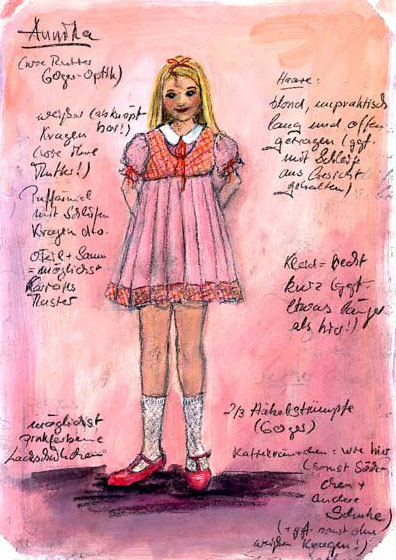 Annika
(wie Mutter
Görges-Optik)
weißer (abknöpf-
Kragen
(wie ihre
Mutter!)
Puffärmel
mit Schleifen
Kragen dto.
Oberteil + Saum
= möglichst
kariertes
Muster
möglichst
pinkfarbene
Lackschuhe
Haare:
blond, unpraktisch
lang und offen
getragen (ggf.
mit Schleife
aus Gesicht
gehalten)
Kleid = recht
kurz (ggf.
etwas länger
als hier!)
2/3 Häkelstrümpfe
(Görges)
Kaffeekränzchen = wie hier
(sonst
andere
Schuhe)
(+ ggf. sonst ohne
weißen Kragen!)